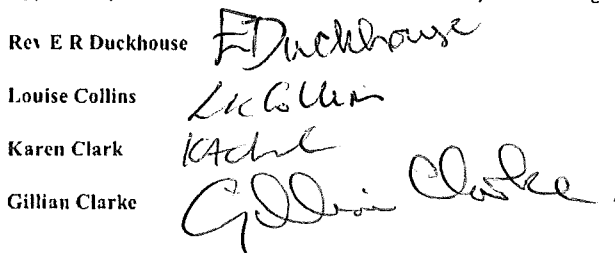 Rev E R Duckhouse EDuckhouse
Louise Collins LK Collins
Karen Clark
Gillian Clarke Gillian Clarke